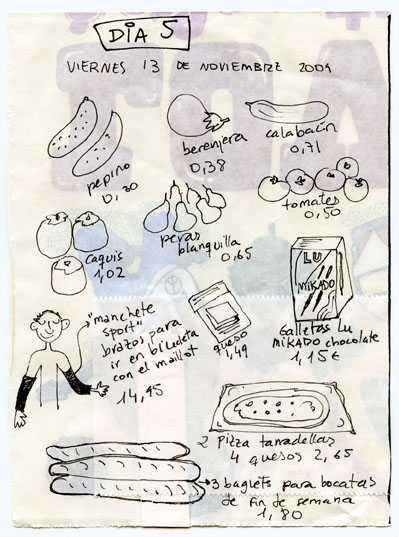 DIA 5
VIERNES 13 DE NOVIEMBRE 2009
pepino
0,30
berenjera
0,38
calabacín
0,71
tomates
0,50
caquis
1,02
peras
blanquilla
0,65
LU
MIKADO
Galletas Lu
MIKADO chocolate
1,15€
"manchete
sport"
brazos para
ir en bicicleta
con el maillot
14,95
queso
1,49
2 Pizza tarradellas
4 quesos 2,65
3 baguets para bocatas
de fin de semana
1,80